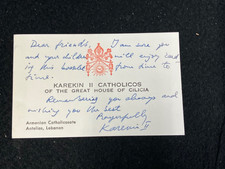 Dear friends, I am sure you
and your children will enjoy
this booklet from time to
time.
KAREKIN II CATHOLICOS
OF THE GREAT HOUSE OF CILICIA
Remembering you always and
wishing you the best
Prayerfully
Karekin II
Armenian Catholicosate
Antelias, Lebanon